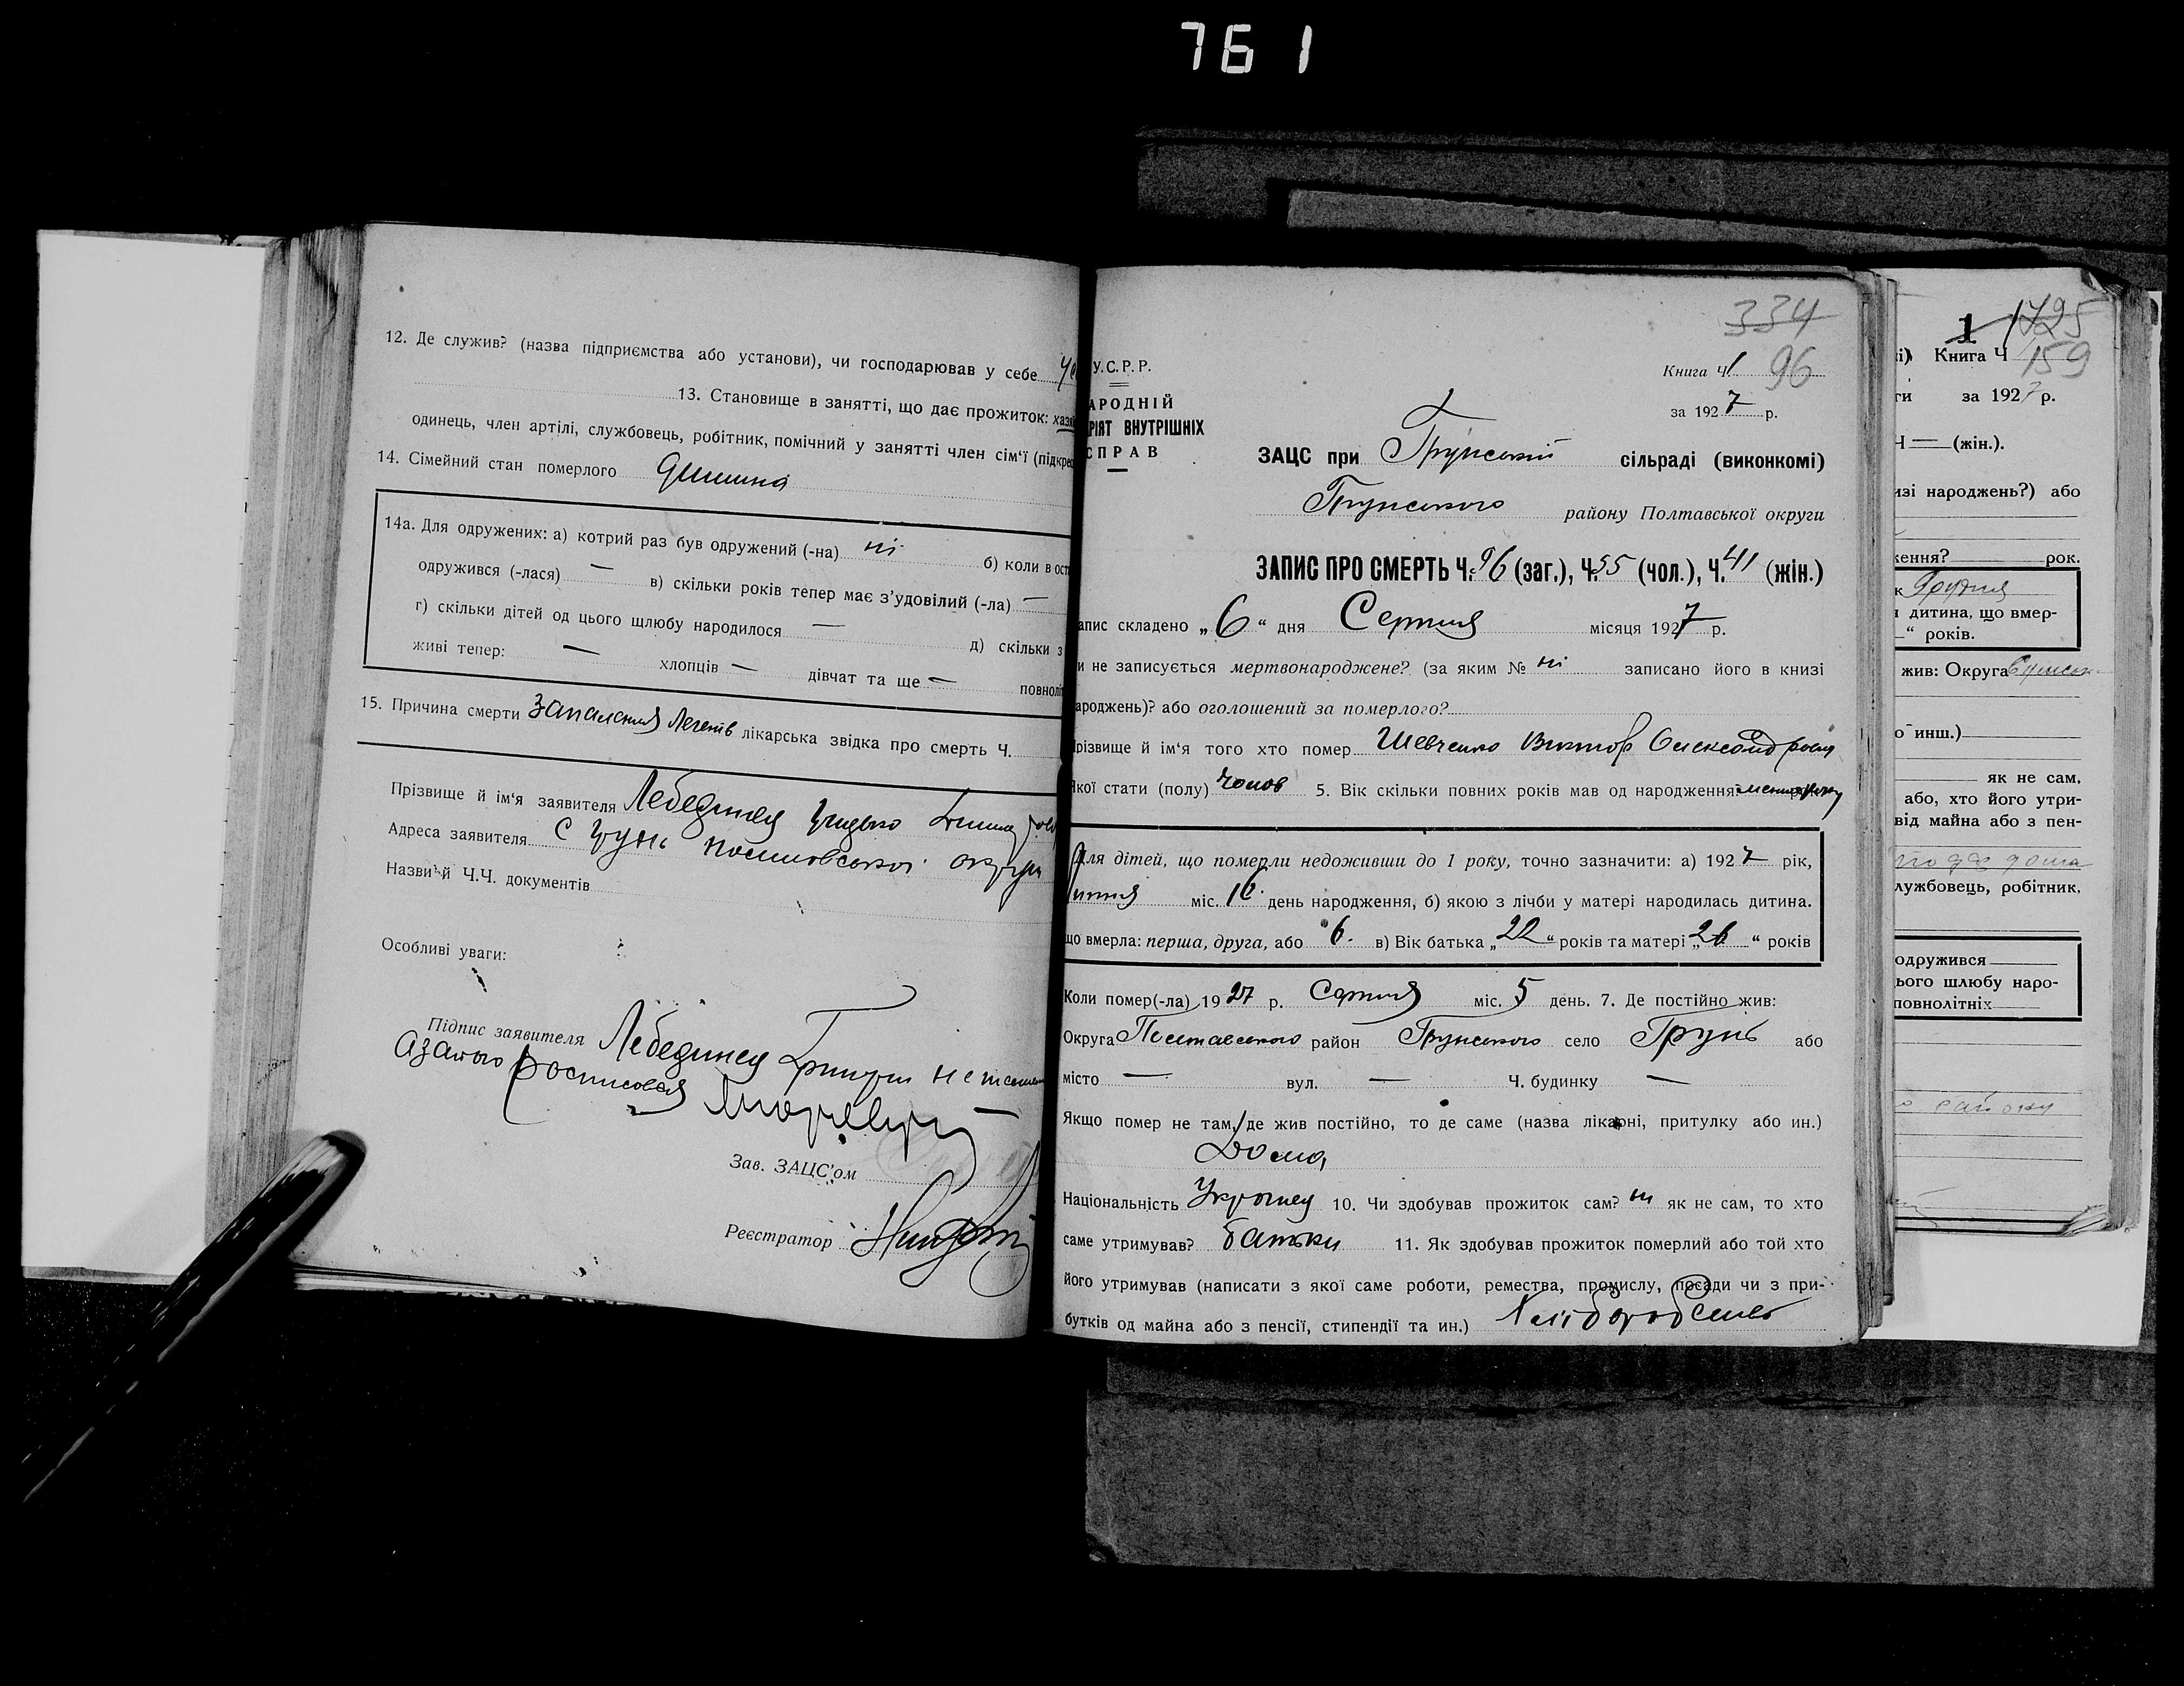 761
12. Де служив? (назва підприємства або установи), чи господарював у себе
13. Становище в занятті, що дає прожиток: хазяї
одинець, член артілі, службовець, робітник, помічний у занятті член сім'ї (підкрес
14. Сімейний стан померлого дитина
14а. Для одружених: а) котрий раз був одружений (-на) ні б) коли в ост
одружився (-лася) — в) скільки років тепер має з'удовілий (-ла) —
г) скільки дітей од цього шлюбу народилося — д) скільки з
живі тепер: — хлопців — дівчат та ще — повноліт
15. Причина смерти Запалення Легенів лікарська звідка про смерть Ч.
Прізвище й ім'я заявителя Лебединец
Адреса заявителя С Грунь Полтавської округи
Назви й Ч.Ч. документів
Особливі уваги:
Підпис заявителя Лебединец
Азатого росписовся
Зав. ЗАЦС'ом
Реєстратор
334
У.С.Р.Р.
Книга Ч. 1 96
АРОДНІЙ
за 1927 р.
РІЯТ ВНУТРІШНІХ
СПРАВ
ЗАЦС при Грунській сільраді (виконкомі)
Грунського району Полтавської округи
ЗАПИС ПРО СМЕРТЬ Ч. 96 (заг.), Ч. 55 (чол.), Ч. 41 (жін.)
апис складено „6“ дня Серпня місяця 1927 р.
и не записується мертвонароджене? (за яким № ні записано його в книзі
ароджень)? або оголошений за померлого?
різвище й ім'я того хто помер Шевченко Виктор Олександрович
Якої стати (полу) Чолов 5. Вік скільки повних років мав од народження
Для дітей, що померли недоживши до 1 року, точно зазначити: а) 1927 рік,
міс. 16 день народження, б) якою з лічби у матері народилась дитина.
що вмерла: перша, друга, або 6. в) Вік батька „22“ років та матері „26“ років
Коли помер(-ла) 1927 р. Серпня міс. 5 день. 7. Де постійно жив:
Округа Полтавського район Грунського село Грунь або
місто — вул. — Ч. будинку —
Якщо помер не там, де жив постійно, то де саме (назва лікарні, притулку або ин.)
Дома
Національність Украинец 10. Чи здобував прожиток сам? ні як не сам, то хто
саме утримував? батьки 11. Як здобував прожиток померлий або той хто
його утримував (написати з якої саме роботи, ремества, промислу, посади чи з при-
бутків од майна або з пенсії, стипендії та ин.) Хліборобство
1 1725
і) Книга Ч 159
ти за 1927 р.
Ч — (жін.).
изі народжень?) або
ження? рок.
к Грудня
дитина, що вмер-
—“ років.
жив: Округа Сумськ
о инш.)
як не сам,
або, хто його утри-
від майна або з пен-
лужбовець, робітник,
одружився
ього шлюбу наро-
повнолітніх
району